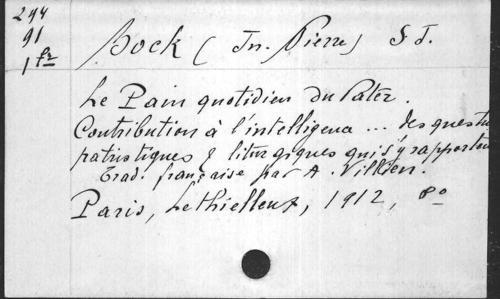 244
91
1 fr
Bock (Jn. Pierre) S J.
Le Pain quotidien du Pater.
Contribution à l'intelligence ... des questi
patristiques & liturgiques qui s'y rapporten
Trad. française par A. Villien.
Paris, Lethielleux, 1912, 8o